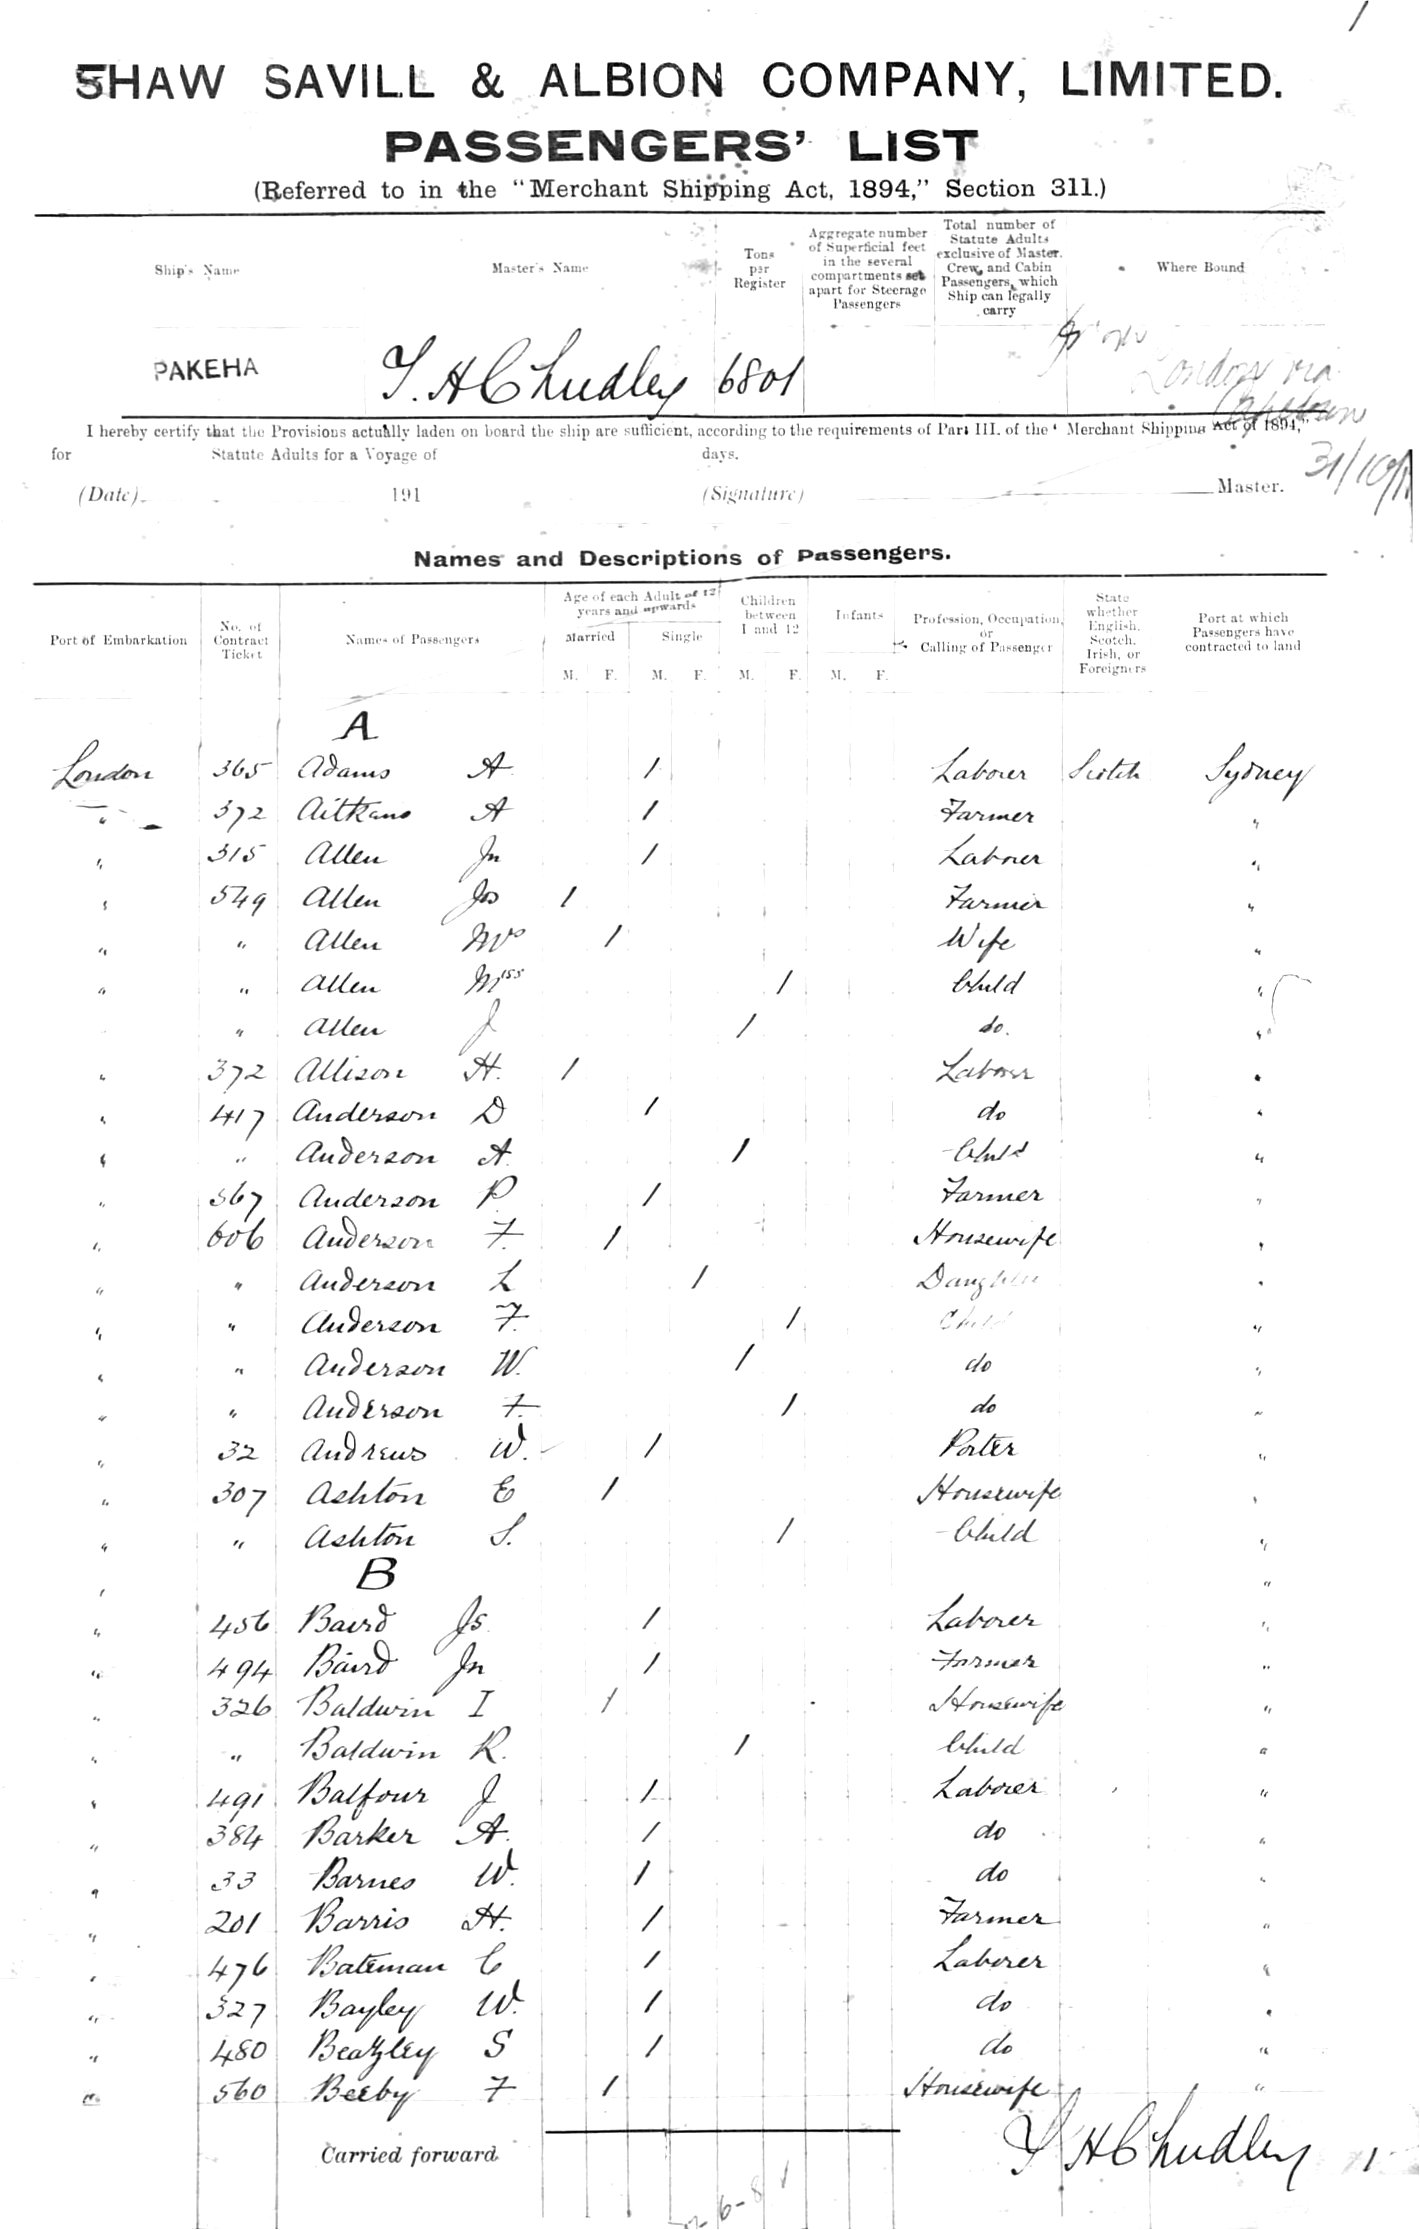 1
SHAW SAVILL & ALBION COMPANY, LIMITED.
PASSENGERS' LIST
(Referred to in the "Merchant Shipping Act, 1894," Section 311.)
Ship's Name Master's Name Tons per Register Aggregate number of Superficial feet in the several compartments set apart for Steerage Passengers Total number of Statute Adults exclusive of Master, Crew, and Cabin Passengers, which Ship can legally carry Where Bound
PAKEHA T. H Chudley 6801 from London via Capetown
I hereby certify that the Provisions actually laden on board the ship are sufficient, according to the requirements of Part III. of the "Merchant Shipping Act of 1894,"
for Statute Adults for a Voyage of days.
31/10/
(Date) 191 (Signature) Master.
Names and Descriptions of Passengers.
Port of Embarkation No. of Contract Ticket Names of Passengers Age of each Adult of 12 years and upwards Children between 1 and 12 Infants Profession, Occupation, or Calling of Passenger State whether English, Scotch, Irish, or Foreigners Port at which Passengers have contracted to land
Married Single
M. F. M. F. M. F. M. F.
A
London 365 Adams A 1 Laborer Scotch Sydney
" 372 Aitkans A 1 Farmer "
" 315 Allen Jn 1 Laborer "
" 549 Allen Jos 1 Farmer "
" " Allen Mrs 1 Wife "
" " Allen Miss 1 Child "
" Allen J 1 do. "
" 372 Allison H. 1 Laborer "
" 417 Anderson D 1 do "
" " Anderson A 1 Child "
" 567 Anderson P. 1 Farmer "
" 606 Anderson F. 1 Housewife "
" " Anderson L 1 Daughter "
" " Anderson F. 1 Child "
" " Anderson W. 1 do "
" " Anderson F. 1 do "
" 32 Andrews W. 1 Porter "
" 307 Ashton E 1 Housewife "
" " Ashton S. 1 Child "
" B "
" 456 Baird Js 1 Laborer "
" 494 Baird Jn 1 Farmer "
" 326 Baldwin I 1 Housewife "
" " Baldwin R. 1 Child "
" 491 Balfour J 1 Laborer "
" 384 Barker A. 1 do "
" 33 Barnes W. 1 do "
" 201 Barris H. 1 Farmer "
" 476 Bateman C 1 Laborer "
" 327 Bayley W. 1 do "
" 480 Beatzley S 1 do "
" 560 Beeby F 1 Housewife "
Carried forward T H Chudley 1